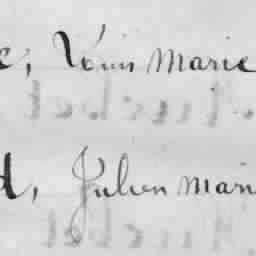 c, Louis Marie
d, Julien Mari